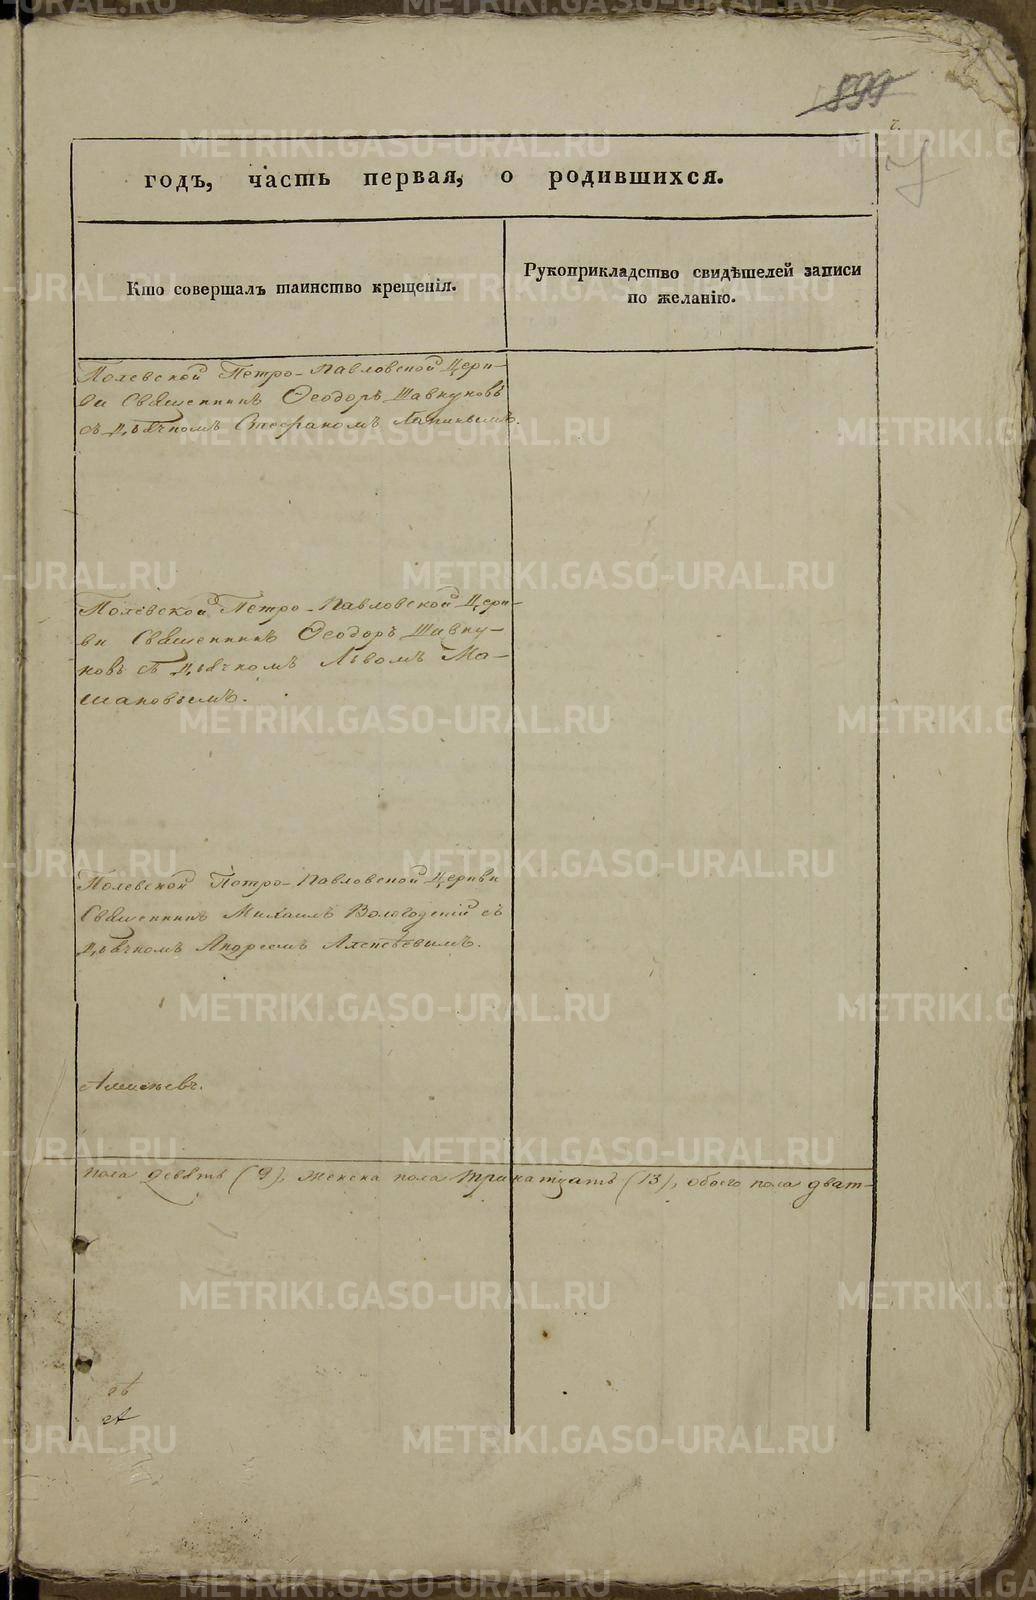 899
годъ, часть первая, о родившихся.
Кто совершалъ таинство крещенія.
Рукоприкладство свидѣтелей записи
по желанію.
Полевской Петро-Павловской Церк-
ви Священникъ Ѳеодоръ Шавкуновъ
съ Дьячкомъ Стефаномъ
Полевской Петро-Павловской Церк-
ви Священникъ Ѳеодоръ Шавку-
новъ съ Дьячкомъ Львомъ Ма-
шановымъ.
Полевской Петро-Павловской Церкви
Священникъ Михаилъ Вологодскій съ
Дьячкомъ Андреемъ
пола девять (9), женска пола тринатцать (13), обоего пола дват-
METRIKI.GASO-URAL.RU